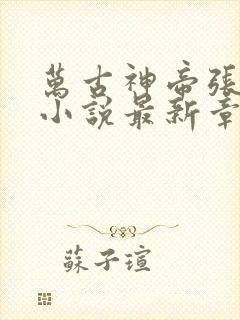 萬古神帝張
小說最新章
蘇子瑄